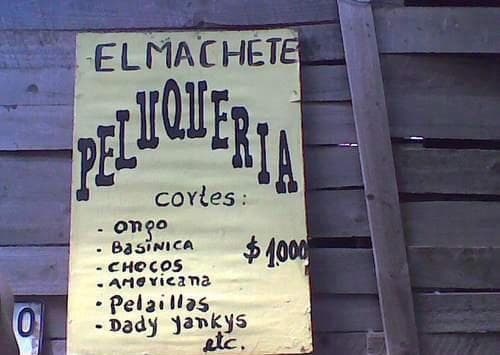 EL MACHETE
PELUQUERIA
cortes:
- ongo
- BASINICA
- CHOCOS
- AMericana
- Pelaillas
- Dady yankys
etc.
$1.000
0